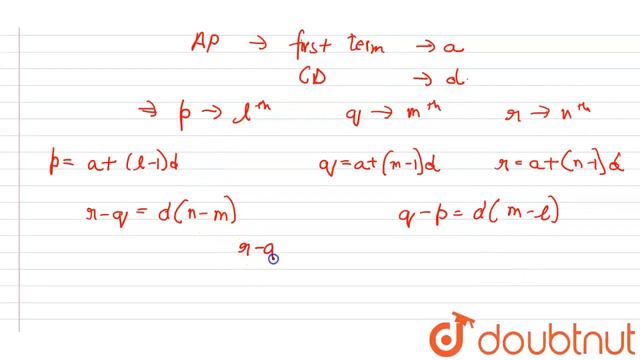 AP → first term → a
CD → d.
⇒ p → lth q → mth r → nth
p = a+(l-1)d q = a+(m-1)d r = a+(n-1)d
r-q = d(n-m) q-p = d(m-l)
r-q
doubtnut